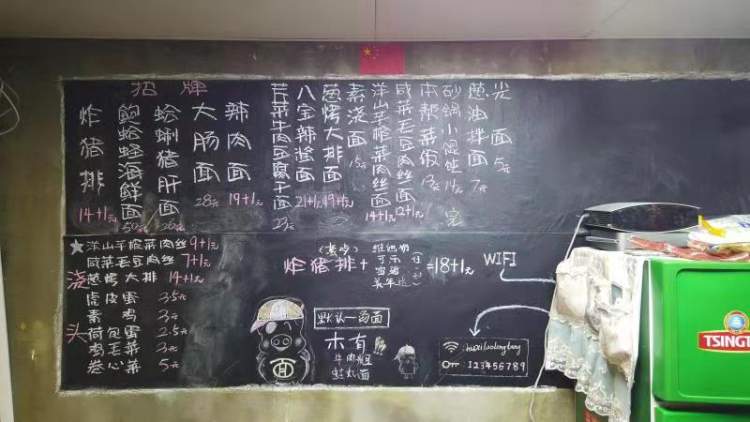 招牌
炸猪排 14+1元
鲍蛤蛏海鲜面 50元
蛤蜊猪肝面 26元
大肠面 28元
辣肉面 19+1元
芹菜牛肉豆腐干面 23元
八宝辣酱面 21+1元
葱烤大排面 19+1元
素浇面 15元
洋山芋榨菜肉丝面 14+1元
咸菜毛豆肉丝面 12+1元
本帮菜饭 13元
砂锅小馄饨 14元 完
葱油拌面 7元
光面 5元
浇头
洋山芋榨菜肉丝 9+1元
咸菜毛豆肉丝 7+1元
葱烤大排 14+1元
虎皮蛋 3.5元
素鸡 3元
荷包蛋 2.5元
鸡毛菜 3元
卷心菜 5元
炸猪排+
可乐
=18+1元
默认一两面
木有
面
WIFI
123456789
TSINGT